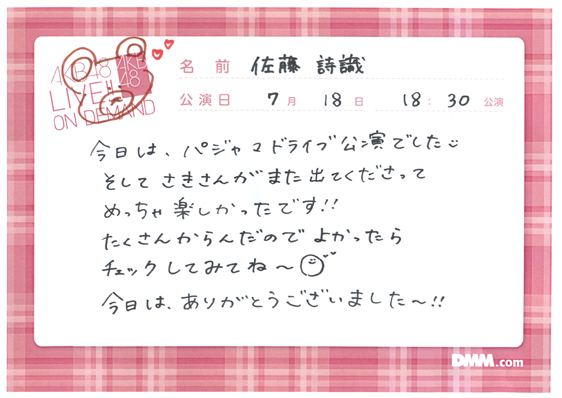 AKB48 AKB48
LIVE!!
ON DEMAND
名前 佐藤 詩識
公演日 7月 18日 18:30 公演
今日は、パジャマドライブ公演でした
そして さきさんが また 出てくださって
めっちゃ 楽しかったです!!
たくさんからんだので よかったら
チェックしてみてね〜
今日は、ありがとうございました〜!!
DMM.com